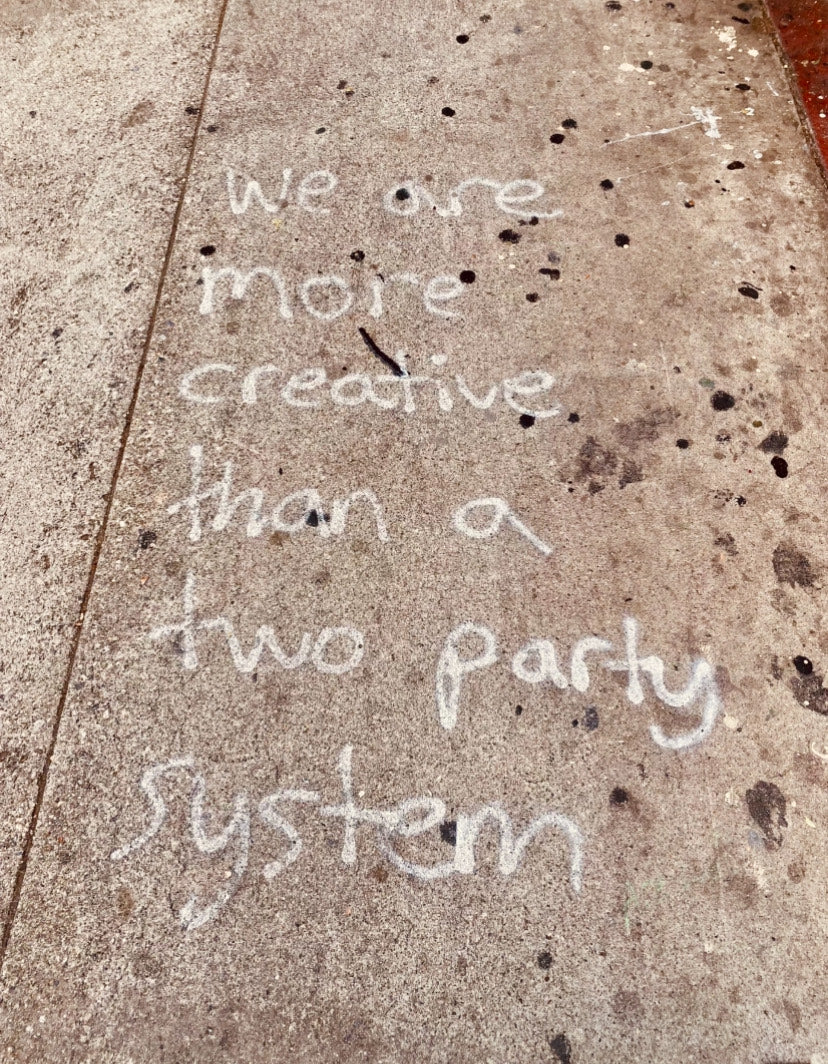 we are
more
creative
than a
two party
system